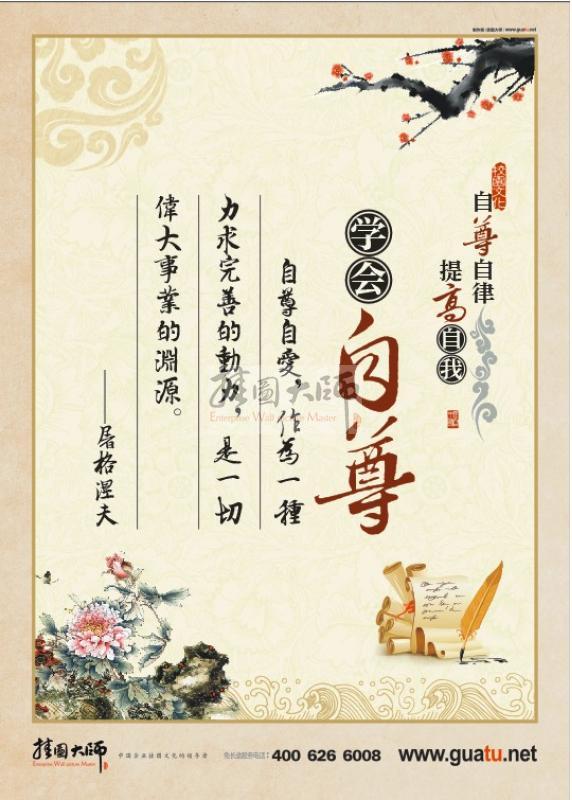 www.guatu.net
校園文化
自尊自律
提高自我
学会
自尊
自尊自愛，作為一種
力求完善的動力，是一切
偉大事業的淵源。
——屠格涅夫
挂图大师
Enterprise Wall picture Master
挂图大师
Enterprise Wall picture Master
中国企业挂图文化的领导者
免长途服务电话：400 626 6008
www.guatu.net